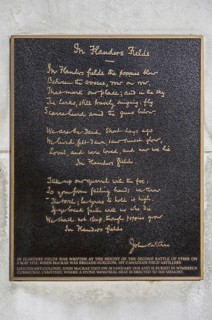 In Flanders Fields
In Flanders fields the poppies blow
Between the crosses, row on row,
That mark our place; and in the sky
The larks, still bravely singing, fly
Scarce heard amid the guns below.
We are the Dead. Short days ago
We lived, felt dawn, saw sunset glow,
Loved, and were loved, and now we lie
In Flanders fields
Take up our quarrel with the foe:
To you from failing hands we throw
The torch; be yours to hold it high.
If ye break faith with us who die
We shall not sleep, though poppies grow
In Flanders fields
John McCrae
IN FLANDERS FIELDS WAS WRITTEN AT THE HEIGHT OF THE SECOND BATTLE OF YPRES ON
3 MAY 1915, WHEN MCCRAE WAS BRIGADE SURGEON, 1ST CANADIAN FIELD ARTILLERY
LIEUTENANT-COLONEL JOHN MCCRAE DIED ON 28 JANUARY 1918 AND IS BURIED IN WIMEREUX